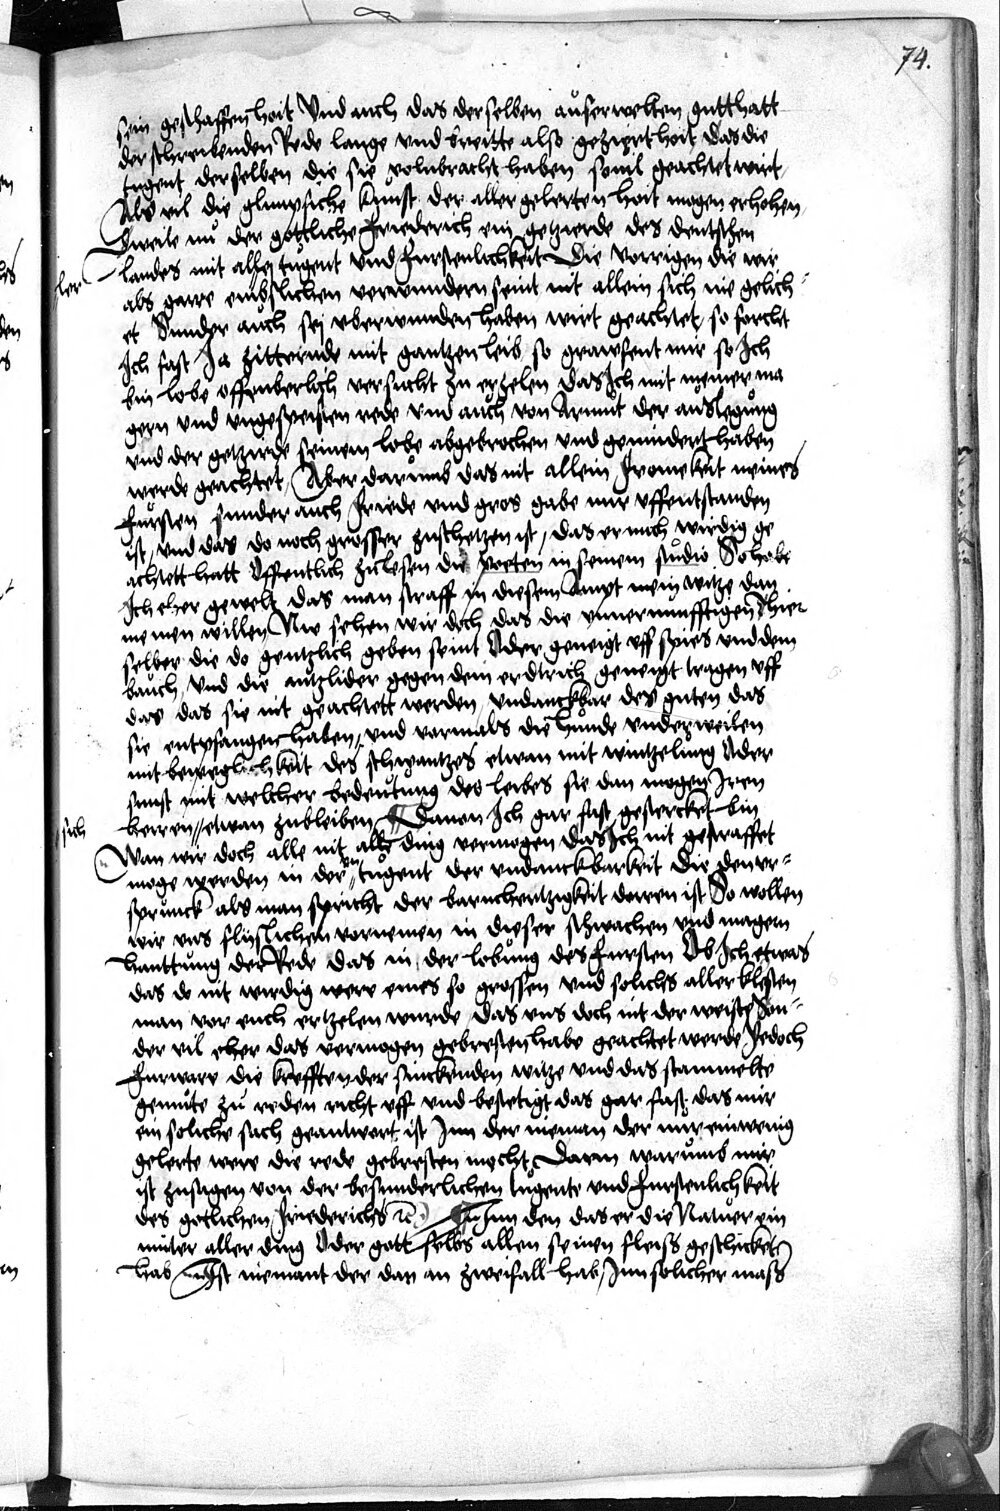 74.
sein geschaffenhoit Vnd auch das derselben auserwelten gutthatt
der schreibenden Rede lange vnd breitte also gezyrt hoit das die
tugent derselben die sie volnbracht haben souil geachtet wirt
Als vil die glimpfliche kunst der aller gelerten hoit mogen erhohen
Dweile nu der gottliche Friederich ein gezierde des deutschen
landes mit aller tugent vnd Furstenlichkeit Die vorrigen die wir
als garre verwundern seint nit allein sich nie gelich
et Sunder auch sej vberwunden haben wirt geachtet so forcht
Ich fast Ja zitternde mit gantzen leib so grawsent mir so Ich
bin lobe offenberlich versucht zu erzelen das Ich mit meiner ma
gern vnd vngespeisten rede vnd auch von Armut der auslegung
vnd der gezierde seinem lobe abgebrochen vnd gemindert haben
werde geachtet, Aber darumb das nit allein Fromekeit meines
Fursten sunder auch Friede vnd gros gabe mir vffentstanden
ist, vnd das do noch grosser zuschetzen ist, das er mich wirdig ge
achtett hatt Offentlich zulesen die poeten in seinem studio So habe
Ich eher gewelt das man straff in diesem Ampt mein witze dan
meinen willen Nw sehen wir doch das die vnuernunfftigen thier
selber die do gentzlich geben seint Oder geneigt vff spies vnd dem
bauch, vnd die mitglider gegen dem erdtrich geneigt tragen vff
das das sie nit geachtett werden vndanckbar des guten das
sie entpfangen haben, vnd vormals die hunde vnderweilen
mit beweglichkeit des schwantzes etwan mit wintzelung Oder
sunst mit welcher bedeutung des leibes sie dan mogen Iren
herren etwan zubleiben Dauon Ich gar fast gestercket bin
sich
Wan wir doch alle nit alle ding vermogen das Ich nit gestraffet
moge werden in der vntugent der vndanckbarkeit Die den vr-
sprunck als man spricht der barmhertzigkeit dorren ist So wollen
wir vns flislichen vornemen in dieser schwachen vnd magern
hanttung der Rede das in der lobung des Fursten Ob Ich etwas
das do nit wirdig were eines so grossen vnd solichs aller klesten
man vor euch ertzelen wurde das vns doch nit der weiste Sun-
der vil eher das vermogen gebresten habe geachtet werde Jedoch
Furware die krefften der sinckenden witze vnd das stammelte
gemute zu reden richt vff vnd bestetigt das gar fast das mir
ein soliche sach geantwort ist Inn der nieman der nur ein wenig
gelerte were die rede gebresten mocht, Darin warumb mir
ist zusagen von der besunderlichen tugente vnd Furstenlichkeit
des gotlichen Friederichs den das er die Natuer ein
muter aller ding Oder gott selbs allen seinen fleiss geschicket
hab Ist niemant der dan in zweifall hab, Inn solicher mass